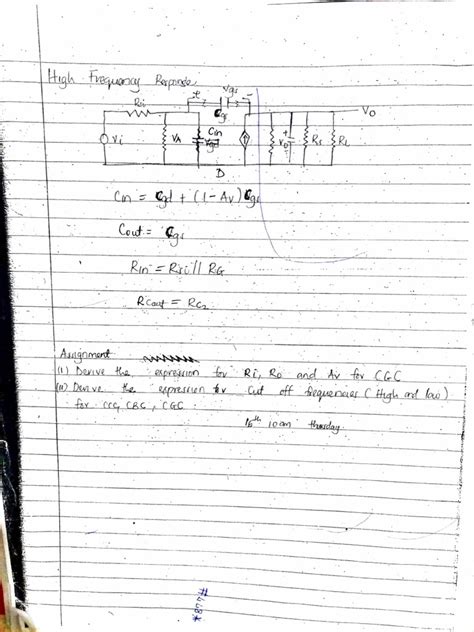 High Frequency Response
+ Vgs -
Rsi
Cgs
Vo
Vi
Cin
+
Vo
Rs
RL
D
Cin = Cgd + (1 - Av) Cgs
Cout = Cgs
Rin = Rsi // RG
Rcout = Rc2
Assignment
(i) Derive the expression for Ri, Ro and Av for CGC
(ii) Derive the expression for Cut off frequencies (High and low)
for CCC, CBC, CGC
10am thursday